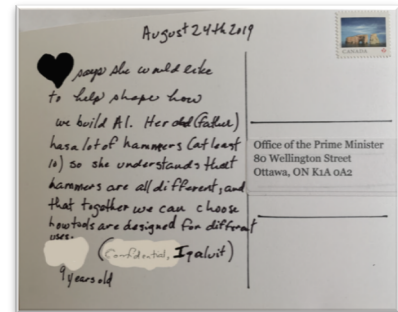 August 24th 2019
CANADA
says she would like
to help shape how
we build AI. Her dad (father)
has a lot of hammers (at least
10) so she understands that
hammers are all different, and
that together we can choose
how tools are designed for different
uses.
(Confidential, Iqaluit)
9 years old
Office of the Prime Minister
80 Wellington Street
Ottawa, ON K1A 0A2